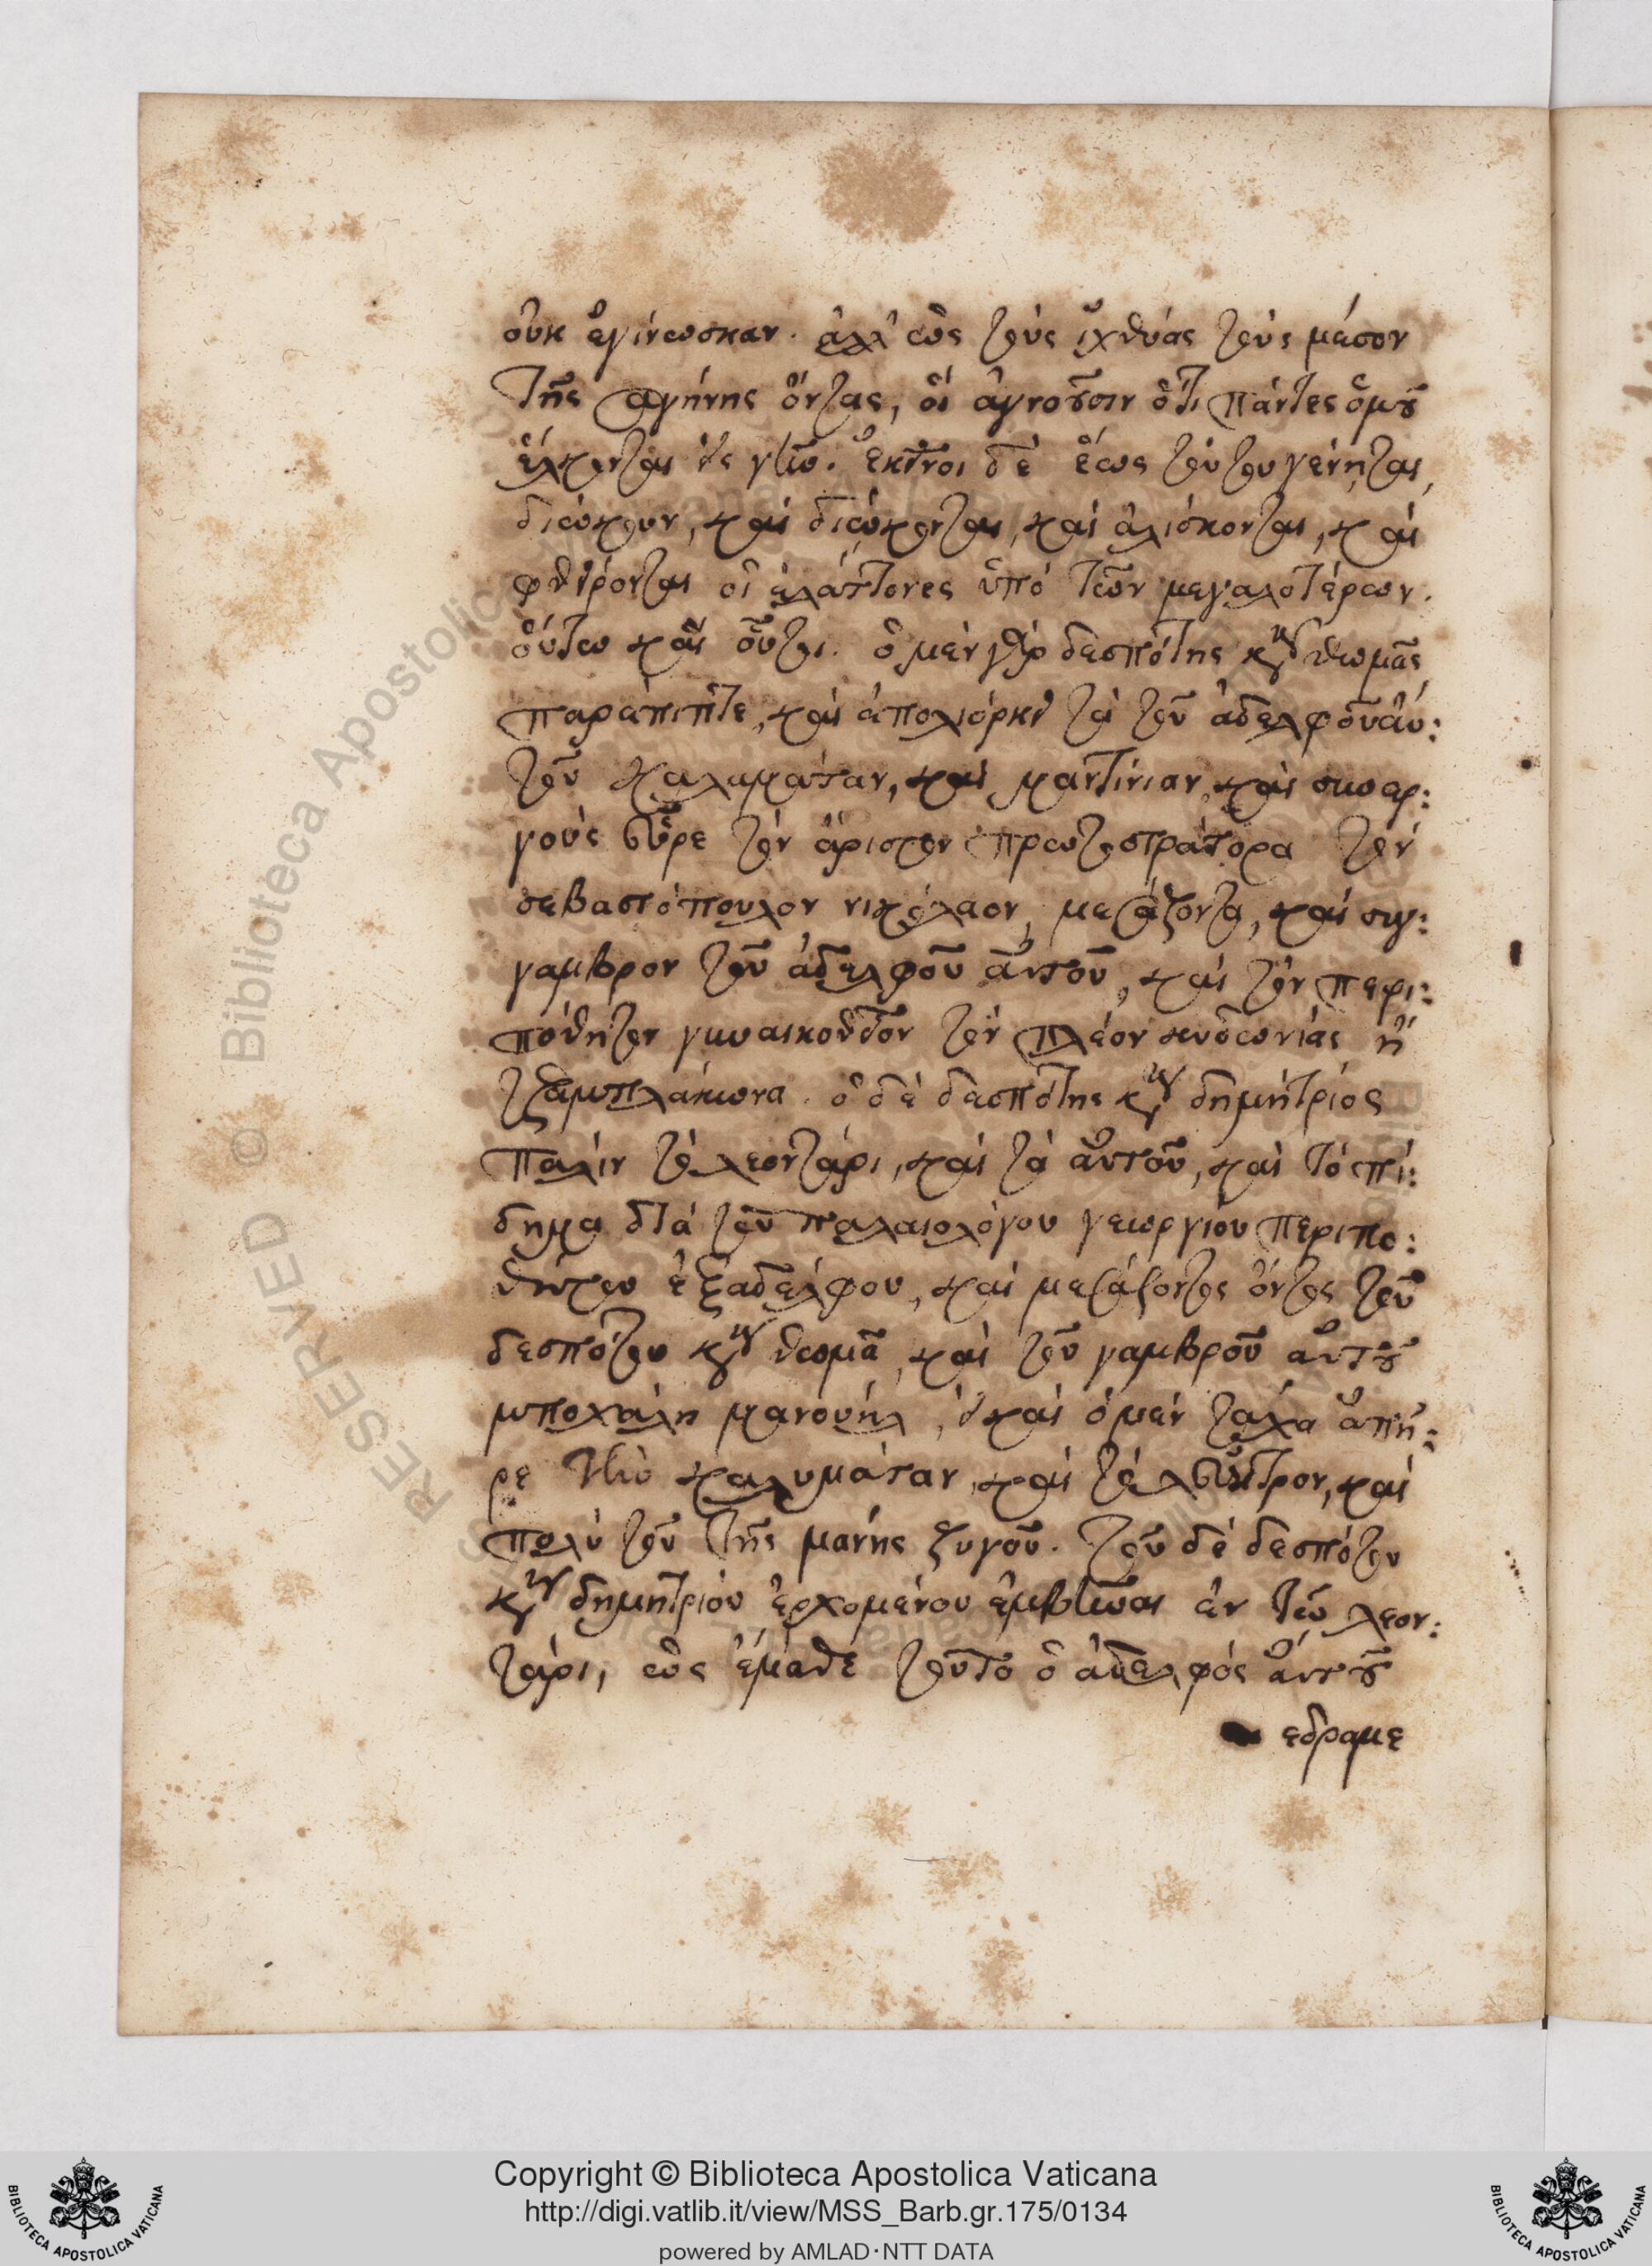 οὐκ ἐγίνωσκαν. ἀλλ' ὡς τοὺς ἰχθύας τοὺς μέσον
τῆς σαγήνης ὄντας, οἳ ἀγνοοῦσιν ὅτι πάντες ὁμοῦ
ἕλκονται εἰς γῆν. ἐκεῖνοι δὲ ἕως τούτου γένηται,
διώκουν, καὶ διώκονται, καὶ ἁλίσκονται, καὶ
φθείρονται οἱ ἐλάττονες ὑπὸ τῶν μεγαλοτέρων.
οὕτω καὶ οὗτοι. ὁ μὲν γὰρ δεσπότης κὺρ θωμᾶς
καὶ ἀπολιόρκει τὰ τοῦ ἀδελφοῦ αὐ:
τοῦ καλαμάταν, καὶ μαντίνιαν, καὶ
τὸν ἄριστον πρωτοστράτορα τὸν
σεβαστόπουλον νικόλαον, μεσάζοντα, καὶ συγ:
γαμβρον τοῦ ἀδελφοῦ αὐτοῦ, καὶ τὸν περι:
πόθητον γυναικοῦ τὸν πλέον κυδωνίας ἢ
τζαμπλάκωνα. ὁ δὲ δεσπότης κὺρ δημήτριος
πάλιν τὸ λεοντάρι, καὶ τὰ αὐτοῦ, καὶ τὸ ἐπί:
δημα διὰ τοῦ παλαιολόγου γεωργίου περιπο:
θήτου ἐξαδέλφου, καὶ μεσάζοντος ὄντος τοῦ
δεσπότου κὺρ θωμᾶ, καὶ τοῦ γαμβροῦ αὐτοῦ
μποχάλη μανουήλ, καὶ ὁ μὲν τάχα ἀπῆ:
ρε τὴν καλυμάταν, καὶ τὸ καὶ
πολὺ τοῦ τῆς μάνης ζυγοῦ. τοῦ δὲ δεσπότου
κὺρ δημητρίου ἐρχομένου ἐμβῆναι ἐν τῶ λεον:
τάρι, ὡς ἔμαθε τοῦτο ὁ ἀδελφὸς αὐτοῦ
εδραμε
Copyright © Biblioteca Apostolica Vaticana
http://digi.vatlib.it/view/MSS_Barb.gr.175/0134
powered by AMLAD·NTT DATA
BIBLIOTECA APOSTOLICA VATICANA
BIBLIOTECA APOSTOLICA VATICANA